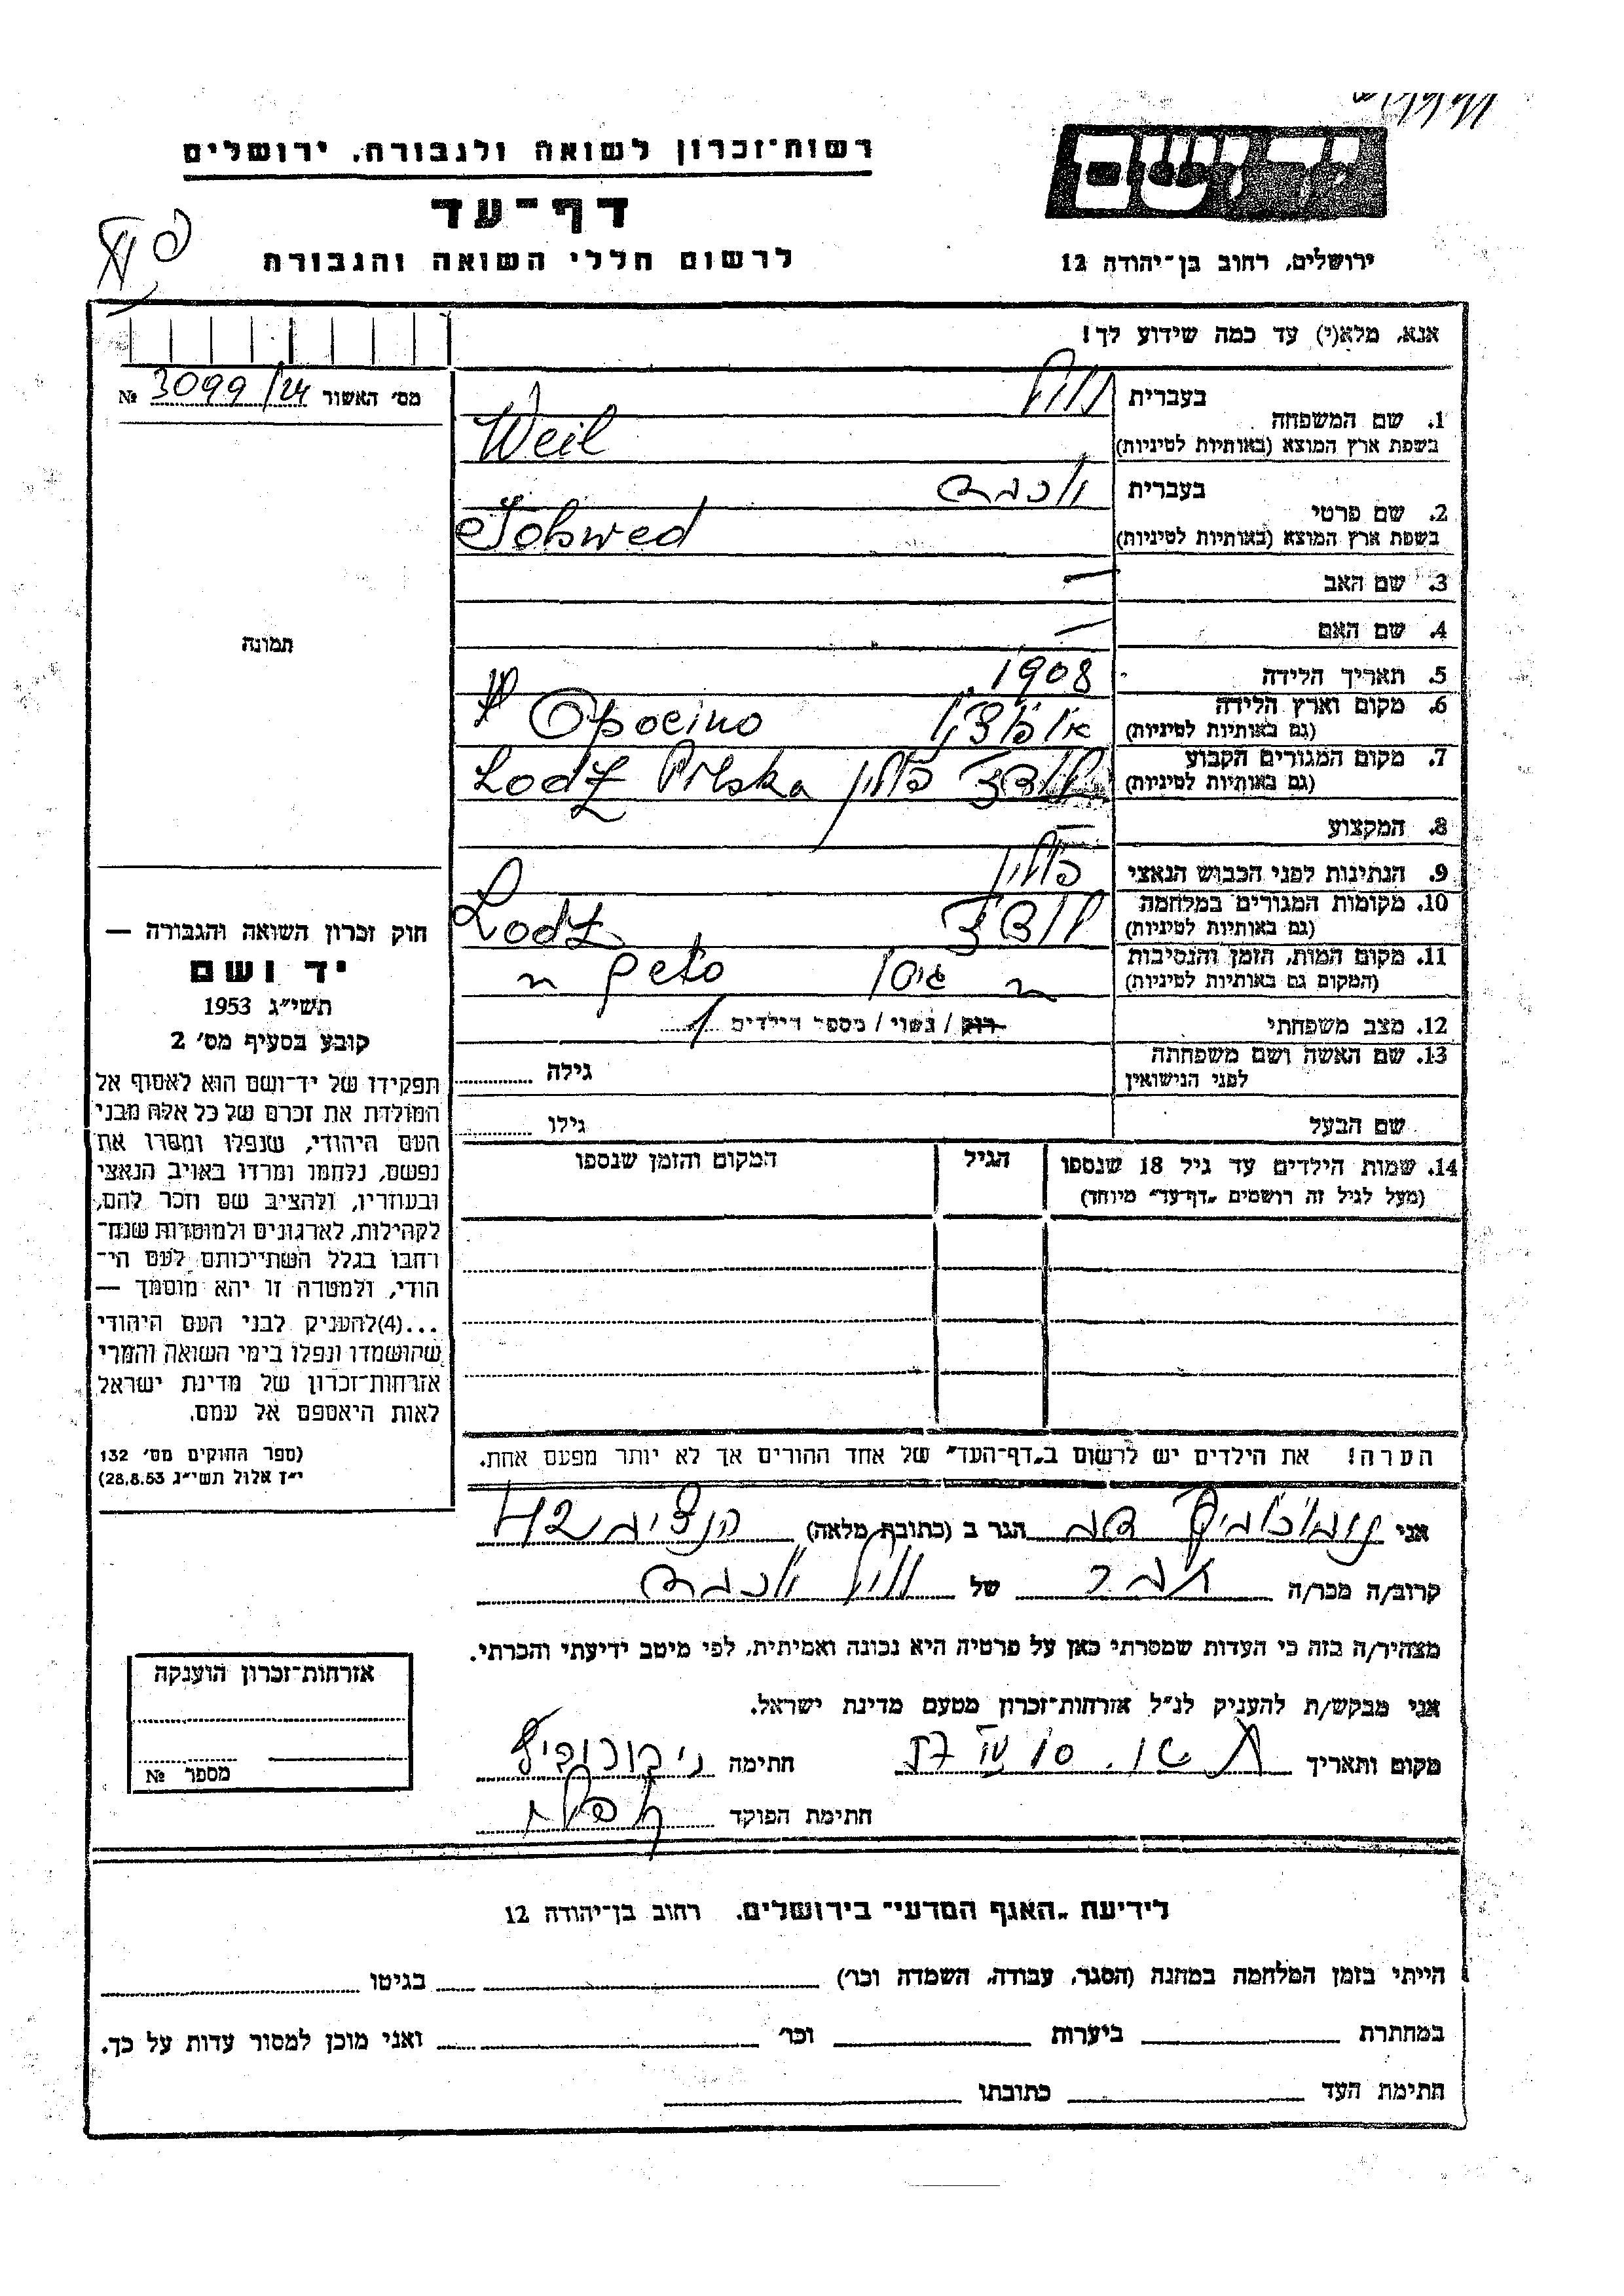 רשות־זכרון לשואה ולגבורה, ירושלים
יד ושם
דף־עד
לרשום חללי השואה והגבורה
ירושלים, רחוב בן־יהודה 12
אנא, מלא(י) עד כמה שידוע לך!
מס׳ האשור 3099/24 №
בעברית
1. שם המשפחה
בשפת ארץ המוצא (באותיות לטיניות) Weil
בעברית
2. שם פרטי
בשפת ארץ המוצא (באותיות לטיניות) Johwed
3. שם האב —
4. שם האם —
תמונה
5. תאריך הלידה 1908
6. מקום וארץ הלידה
(גם באותיות לטיניות) Opocino
7. מקום המגורים הקבוע לודז׳ פולין
(גם באותיות לטיניות) Lodz Polska
8. המקצוע —
9. הנתינות לפני הכבוש הנאצי פולין
10. מקומות המגורים במלחמה לודז׳
(גם באותיות לטיניות) Lodz
11. מקום המות, הזמן והנסיבות גיטו
(המקום גם באותיות לטיניות) geto
12. מצב משפחתי רווק / נשוי / מספר הילדים 1
13. שם האשה ושם משפחתה
לפני הנישואין גילה
שם הבעל גילו
14. שמות הילדים עד גיל 18 שנספו הגיל המקום והזמן שנספו
(מעל לגיל זה רושמים „דף־עד״ מיוחד)
הערה! את הילדים יש לרשום ב„דף־העד״ של אחד ההורים אך לא יותר מפעם אחת.
חוק זכרון השואה והגבורה —
יד ושם
תשי״ג 1953
קובע בסעיף מס׳ 2
תפקידו של יד־ושם הוא לאסוף אל
המולדת את זכרם של כל אלה מבני
העם היהודי, שנפלו ומסרו את
נפשם, נלחמו ומרדו באויב הנאצי
ובעוזריו, ולהציב שם וזכר להם,
לקהילות, לארגונים ולמוסדות שנח־
רבו בגלל השתייכותם לעם הי־
הודי, ולמטרה זו יהא מוסמך —
...(4)להעניק לבני העם היהודי
שהושמדו ונפלו בימי השואה והמרי
אזרחות־זכרון של מדינת ישראל
לאות היאספם אל עמם.
(ספר החוקים מס׳ 132
י״ז אלול תשי״ג 28.8.53)
אני הגר ב (כתובת מלאה) 42
קרוב/ה מכר/ה של
מצהיר/ה בזה כי העדות שמסרתי כאן על פרטיה היא נכונה ואמיתית, לפי מיטב ידיעתי והכרתי.
אני מבקש/ת להעניק לנ״ל אזרחות־זכרון מטעם מדינת ישראל.
מקום ותאריך חתימה
חתימת הפוקד
אזרחות־זכרון הוענקה
מספר №
לידיעת „האגף המדעי״ בירושלים, רחוב בן־יהודה 12
הייתי בזמן המלחמה במחנה (הסגר, עבודה, השמדה וכו׳) בגיטו
במחתרת ביערות וכו׳ ואני מוכן למסור עדות על כך.
חתימת העד כתובתו